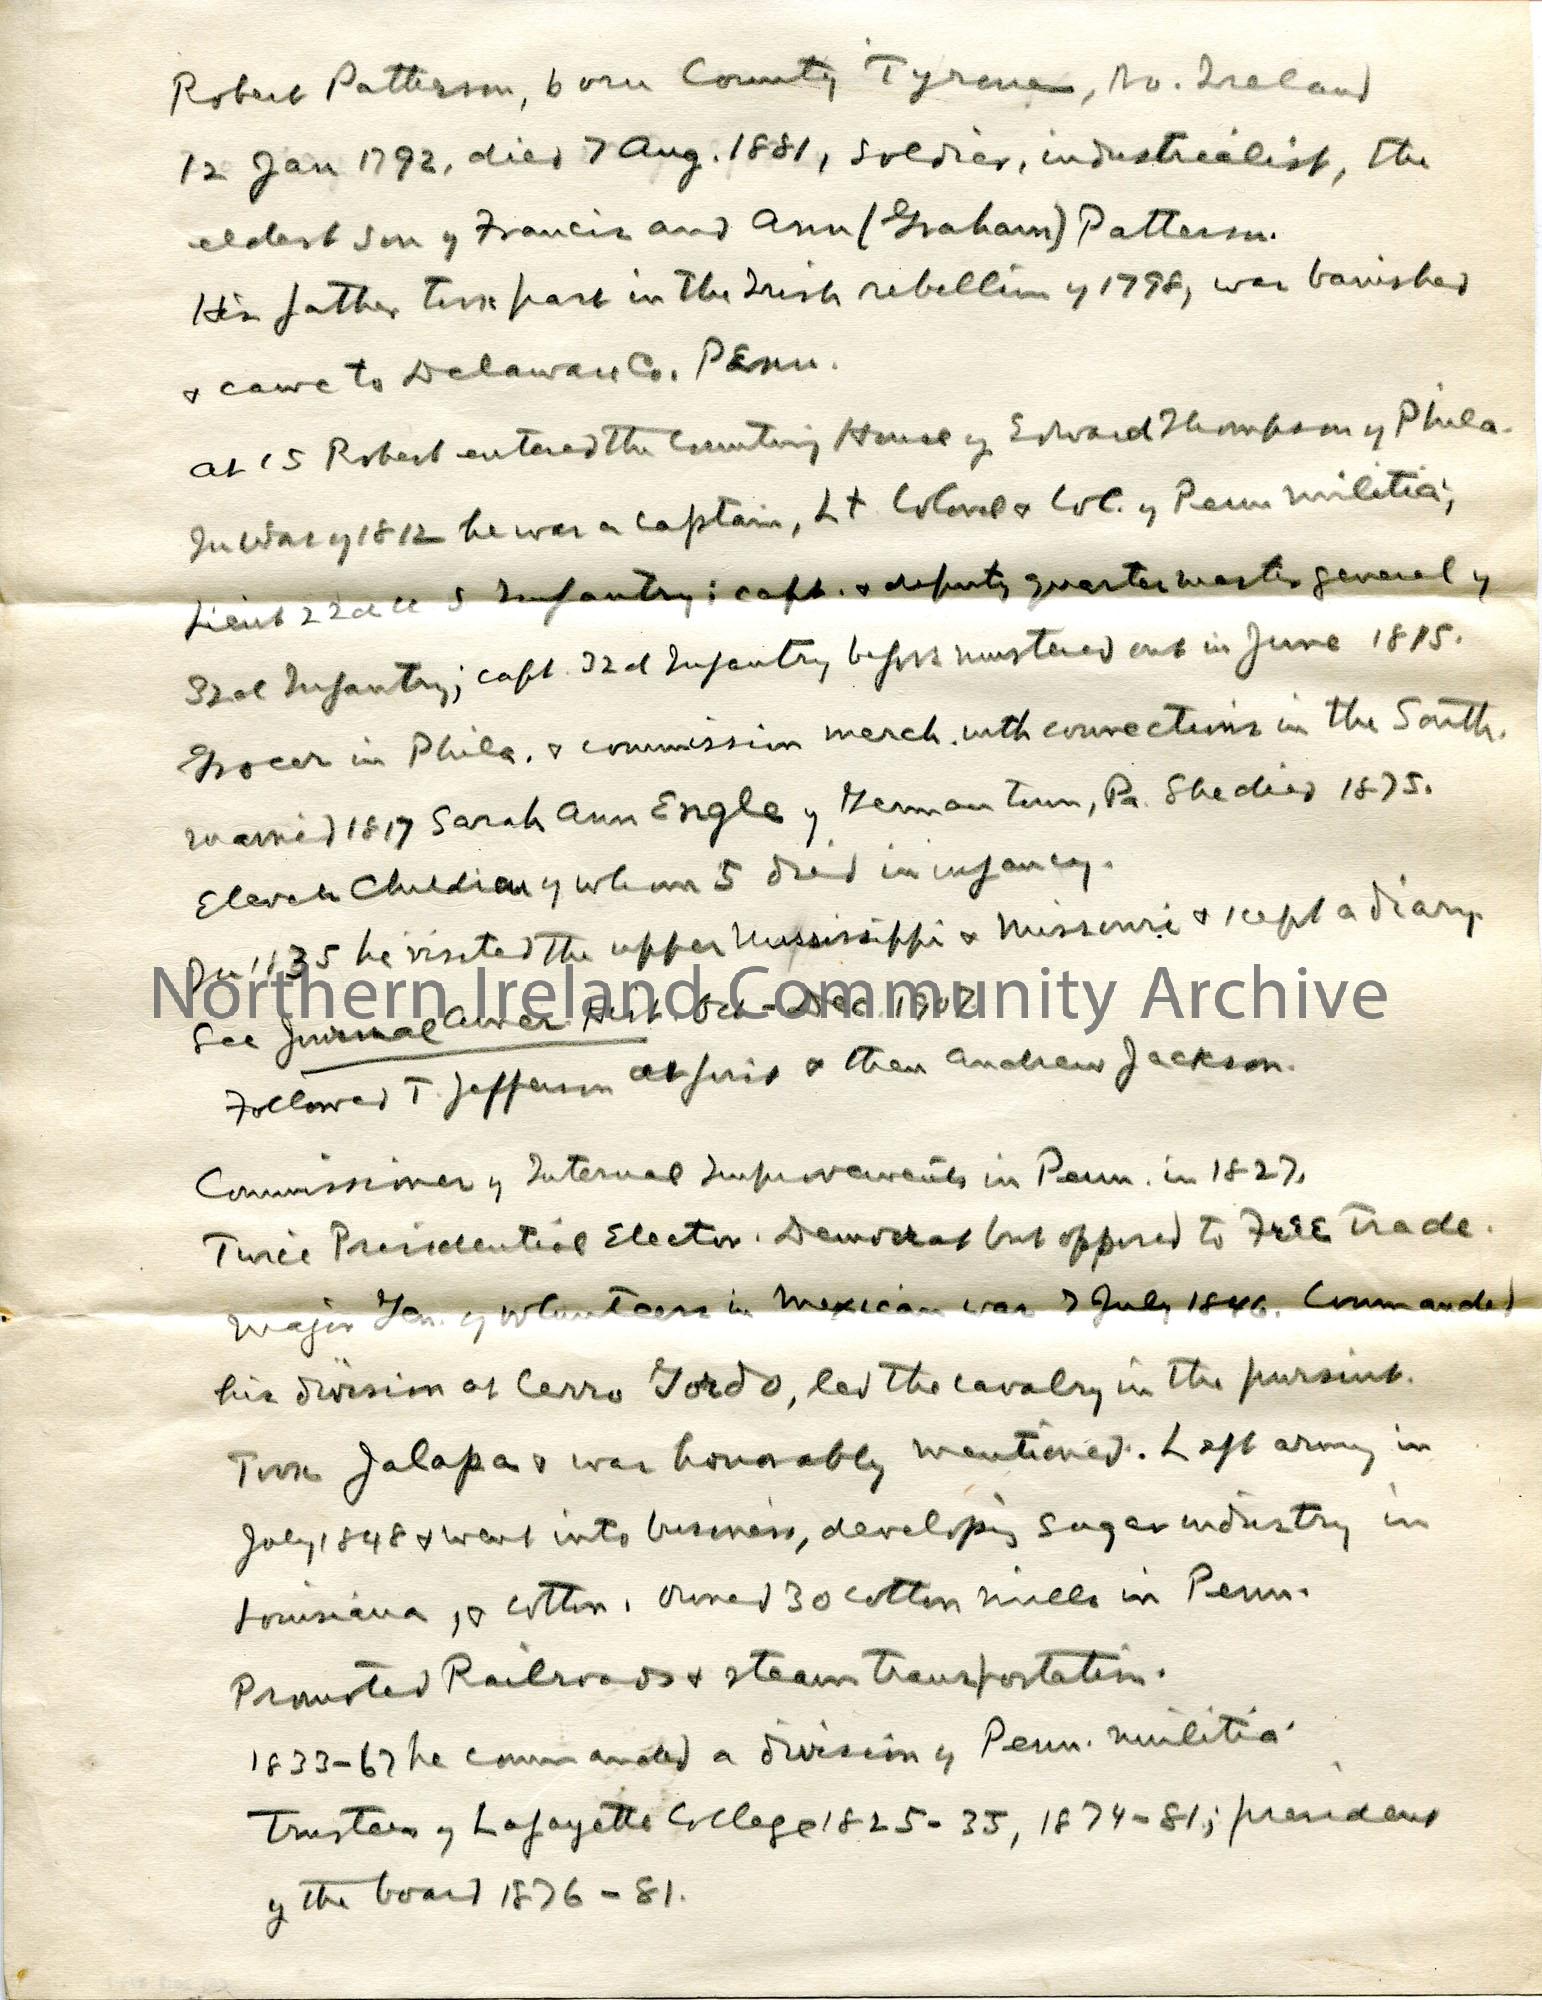 Robert Patterson, born County Tyrone, No. Ireland
12 Jan 1792, died 7 Aug. 1881, soldier, industrialist, the
eldest son of Francis and Ann (Graham) Patterson.
His father took part in the Irish rebellion of 1798, was banished
& came to Delaware Co. Penn.
At 15 Robert entered the Counting House of Edward Thompson of Phila.
In War of 1812 he was a captain, Lt Colonel & Col. of Penn militia;
Lieut 22d U S Infantry; capt. & deputy quartermaster general of
32d Infantry; capt. 32d Infantry before mustered out in June 1815.
Grocer in Phila. & commission merch. with connections in the South.
Married 1817 Sarah Ann Engle of Germantown, Pa. She died 1875.
Eleven Children of whom 5 died in infancy.
In 1135 he visited the upper Mississippi & Missouri & kept a diary.
See Journal Amer. Hist. Oct - Dec. 1907
Northern Ireland Community Archive
Followed T. Jefferson at first & then Andrew Jackson.
Commissioner of Internal Improvements in Penn. in 1827.
Twice Presidential Elector. Democrat but opposed to Free Trade.
Major Gen. of volunteers in Mexican war 7 July 1846. Commanded
his division at Cerro Gordo, led the cavalry in the pursuit.
Took Jalapa & was honorably mentioned. Left army in
July 1848 & went into business, developing sugar industry in
Louisiana, & cotton. Owned 30 cotton mills in Penn.
Promoted Railroads & steam transportation.
1833-67 he commanded a division of Penn. militia
Trustee of Lafayette College 1825-35, 1874-81; president
of the board 1876-81.